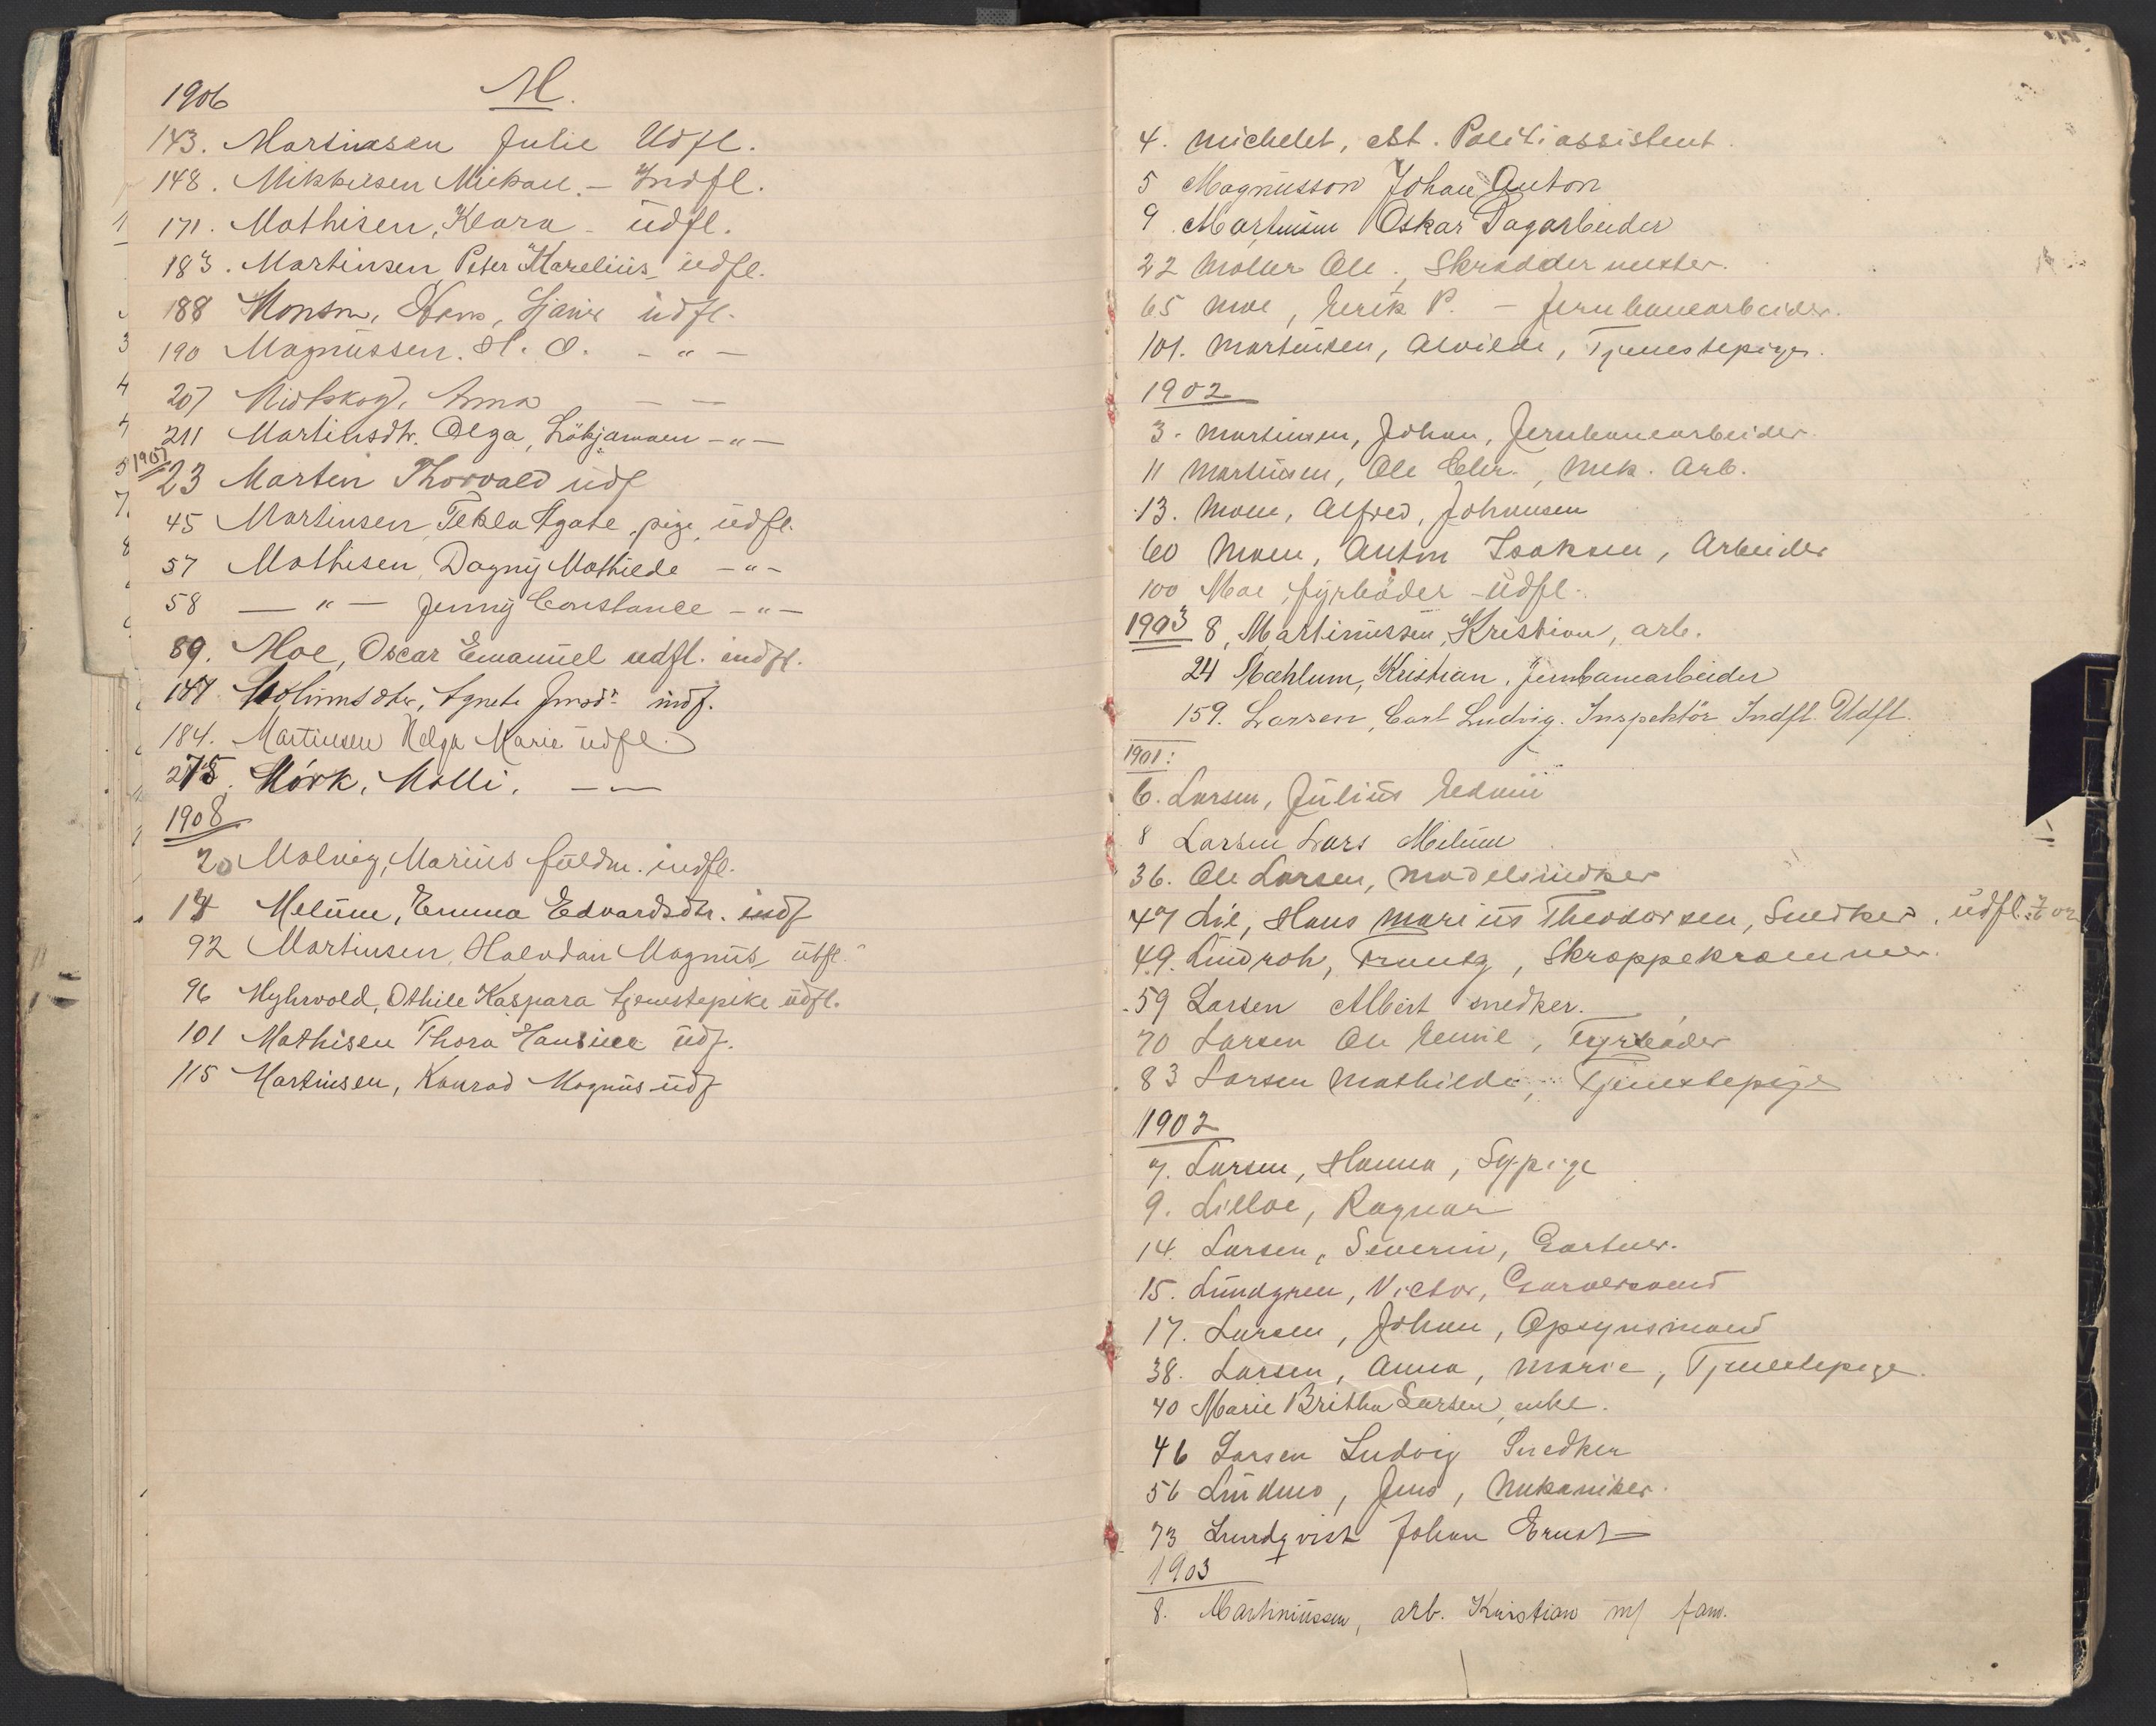 1906 M.
143. Martinsen Julie Udfl.
148. Mikkelsen Mickael - Indfl.
171. Mathisen, Klara - udfl.
183. Martinsen Peter Karelius, udfl.
188 Monsen, Hans, udfl.
190 Magnussen. H. O. - " -
207 Midtskog, Anna — —
211 Martinsdtr. Olga, - " -
1907 23 Martin Thorvald udf
45 Martinsen, Tekla Agate, pige, udfl.
57 Mathisen, Dagny Mathilde - " -
58 — " — Jenny Constance - " -
89. Moe, Oscar Emanuel udfl. indfl.
147 Agnete indf.
184. Martinsen Helga Marie udfl.
275. Mörk, Molli. — —
1908
20 Malvig, Marius fuldm. indfl.
14 Melum, Emma Edvardsdtr. indf
92 Martinsen, Halvdan Magnus, utfl.
96 Myhrvold, Othile Kaspara tjenestepike udfl.
101 Mathisen Thora Hansine udf.
115 Martinsen, Konrad Magnus udf
4. Michelet, Ast. Politiassistent.
5 Magnusson Johan Anton
9. Martinsen Oskar Dagarbeider
22 Moller Ole, Skrædder mester.
65 Moe, Erik P. - Jernbanearbeider.
101. Martinsen, Alvilde, Tjenestepige.
1902
3. Martinsen, Johan, Jernbanearbeider.
11 Martinsen, Ole Chr., Mek. Arb.
13. Moen, Alfred, Johansen
60 Moen, Anton Isaksen, Arbeider
100 Moe, fyrbøder - udfl.
1903 8, Martinussen, Kristian, arb.
24 Mæhlum, Kristian, Jernbanearbeider
159. Larsen, Carl Ludvig. Inspektör Indfl. Udfl.
1901:
6. Larsen, Julius Edvin
8 Larsen Lars Melum
36. Ole Larsen, Modelsnedker
47 Lie, Hans Marius Theodorsen, Snedker, udfl.
49. Lindroh, Frantz, Skroppekræmmer.
59 Larsen Albert snedker.
70 Larsen Ole Emil, Fyrbøder
83 Larsen Mathilde, Tjenestepige
1902
7. Larsen, Hanna, Sypige
9. Lilloe, Ragnar
14. Larsen, Severin, Gartner.
15. Lundgren, Victor, Garversvend
17. Larsen, Johan, Opsynsmand
38. Larsen, Anna, Marie, Tjenestepige.
40 Marie Britha Larsen, enke.
46 Larsen Ludvig Snedker
56 Lindmo, Jens, Mekaniker.
73 Lundqvist Johan Ernst
1903
8. Martinussen, arb. Kristian m/ fam.